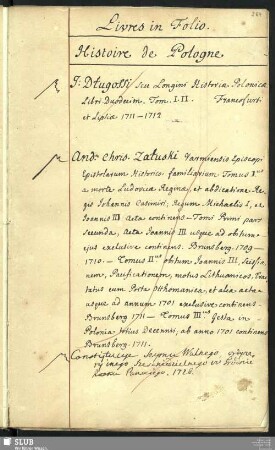 Livres in Folio.
Histoire de Pologne
J. Długossi seu Longini Historiæ Polonicæ
Libri Duodecim. Tom. I. II. Francofurti
et Lipsiæ 1711-1712
Andr. Chris. Załuski Varmiensis Episcopi
Epistolarum Historico familiarium Tomus Imus
a morte Ludovicæ Reginæ, et abdicatione Re-
gis Johannis Casimiri, Regum Michaelis I, et
Joannis III. Acta continens - Tomi Primi pars
secunda, Acta Joannis III usque ad obitum
ejus exclusive continens. Brunsberg. 1709-
1710. - Tomus IIdus obitum Joannis III,
nem, Pacificationem, motus Lithuanicos, Trac-
tatus cum Porta Otthomanica, et alia acta
usque ad annum 1701 exclusive continens.
Brunsberg 1711 - Tomus IIItius Gesta in
Polonia totius Decennii, ab anno 1701 continens
Brunsberg. 1711.
Constitucye Seymu Walnego
1726.
SLUB